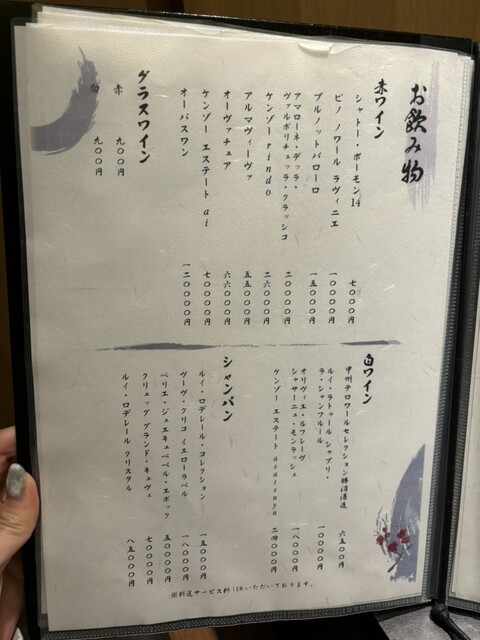 お飲み物
赤ワイン
シャトー・ボーモン14 七〇〇〇円
ピノ ノワール ラヴィニエ 一〇〇〇〇円
ブルノットバローロ 一五〇〇〇円
アマローネ・デッラ・
ヴァルポリチェッラ・クラッシコ 二〇〇〇〇円
ケンゾーrindo 二六〇〇〇円
アルマヴィーヴァ 五五〇〇〇円
オーヴァチュア 六六〇〇〇円
ケンゾー エステート ai 七〇〇〇〇円
オーパスワン 一二〇〇〇〇円
グラスワイン
赤 九〇〇円
白 九〇〇円
白ワイン
甲州テロワールセレクション勝沼酒造 六五〇〇円
ルイ・ラトゥール シャブリ・
ラ・シャンフルール 一〇〇〇〇円
オリヴィエ・ルフレーヴ
シャサーニュ・モンラッシェ 一八〇〇〇円
ケンゾー エステート asatsuyu 二四〇〇〇円
シャンパン
ルイ・ロデレール・コレクション 一五〇〇〇円
ヴーヴ・クリコ イエローラベル 一八〇〇〇円
ペリエ・ジュエキュベベル・エポック 五〇〇〇〇円
クリュッグ グランド・キュヴェ 七〇〇〇〇円
ルイ・ロデレール クリスタル 八五〇〇〇円
※別途サービス料 いただいております。